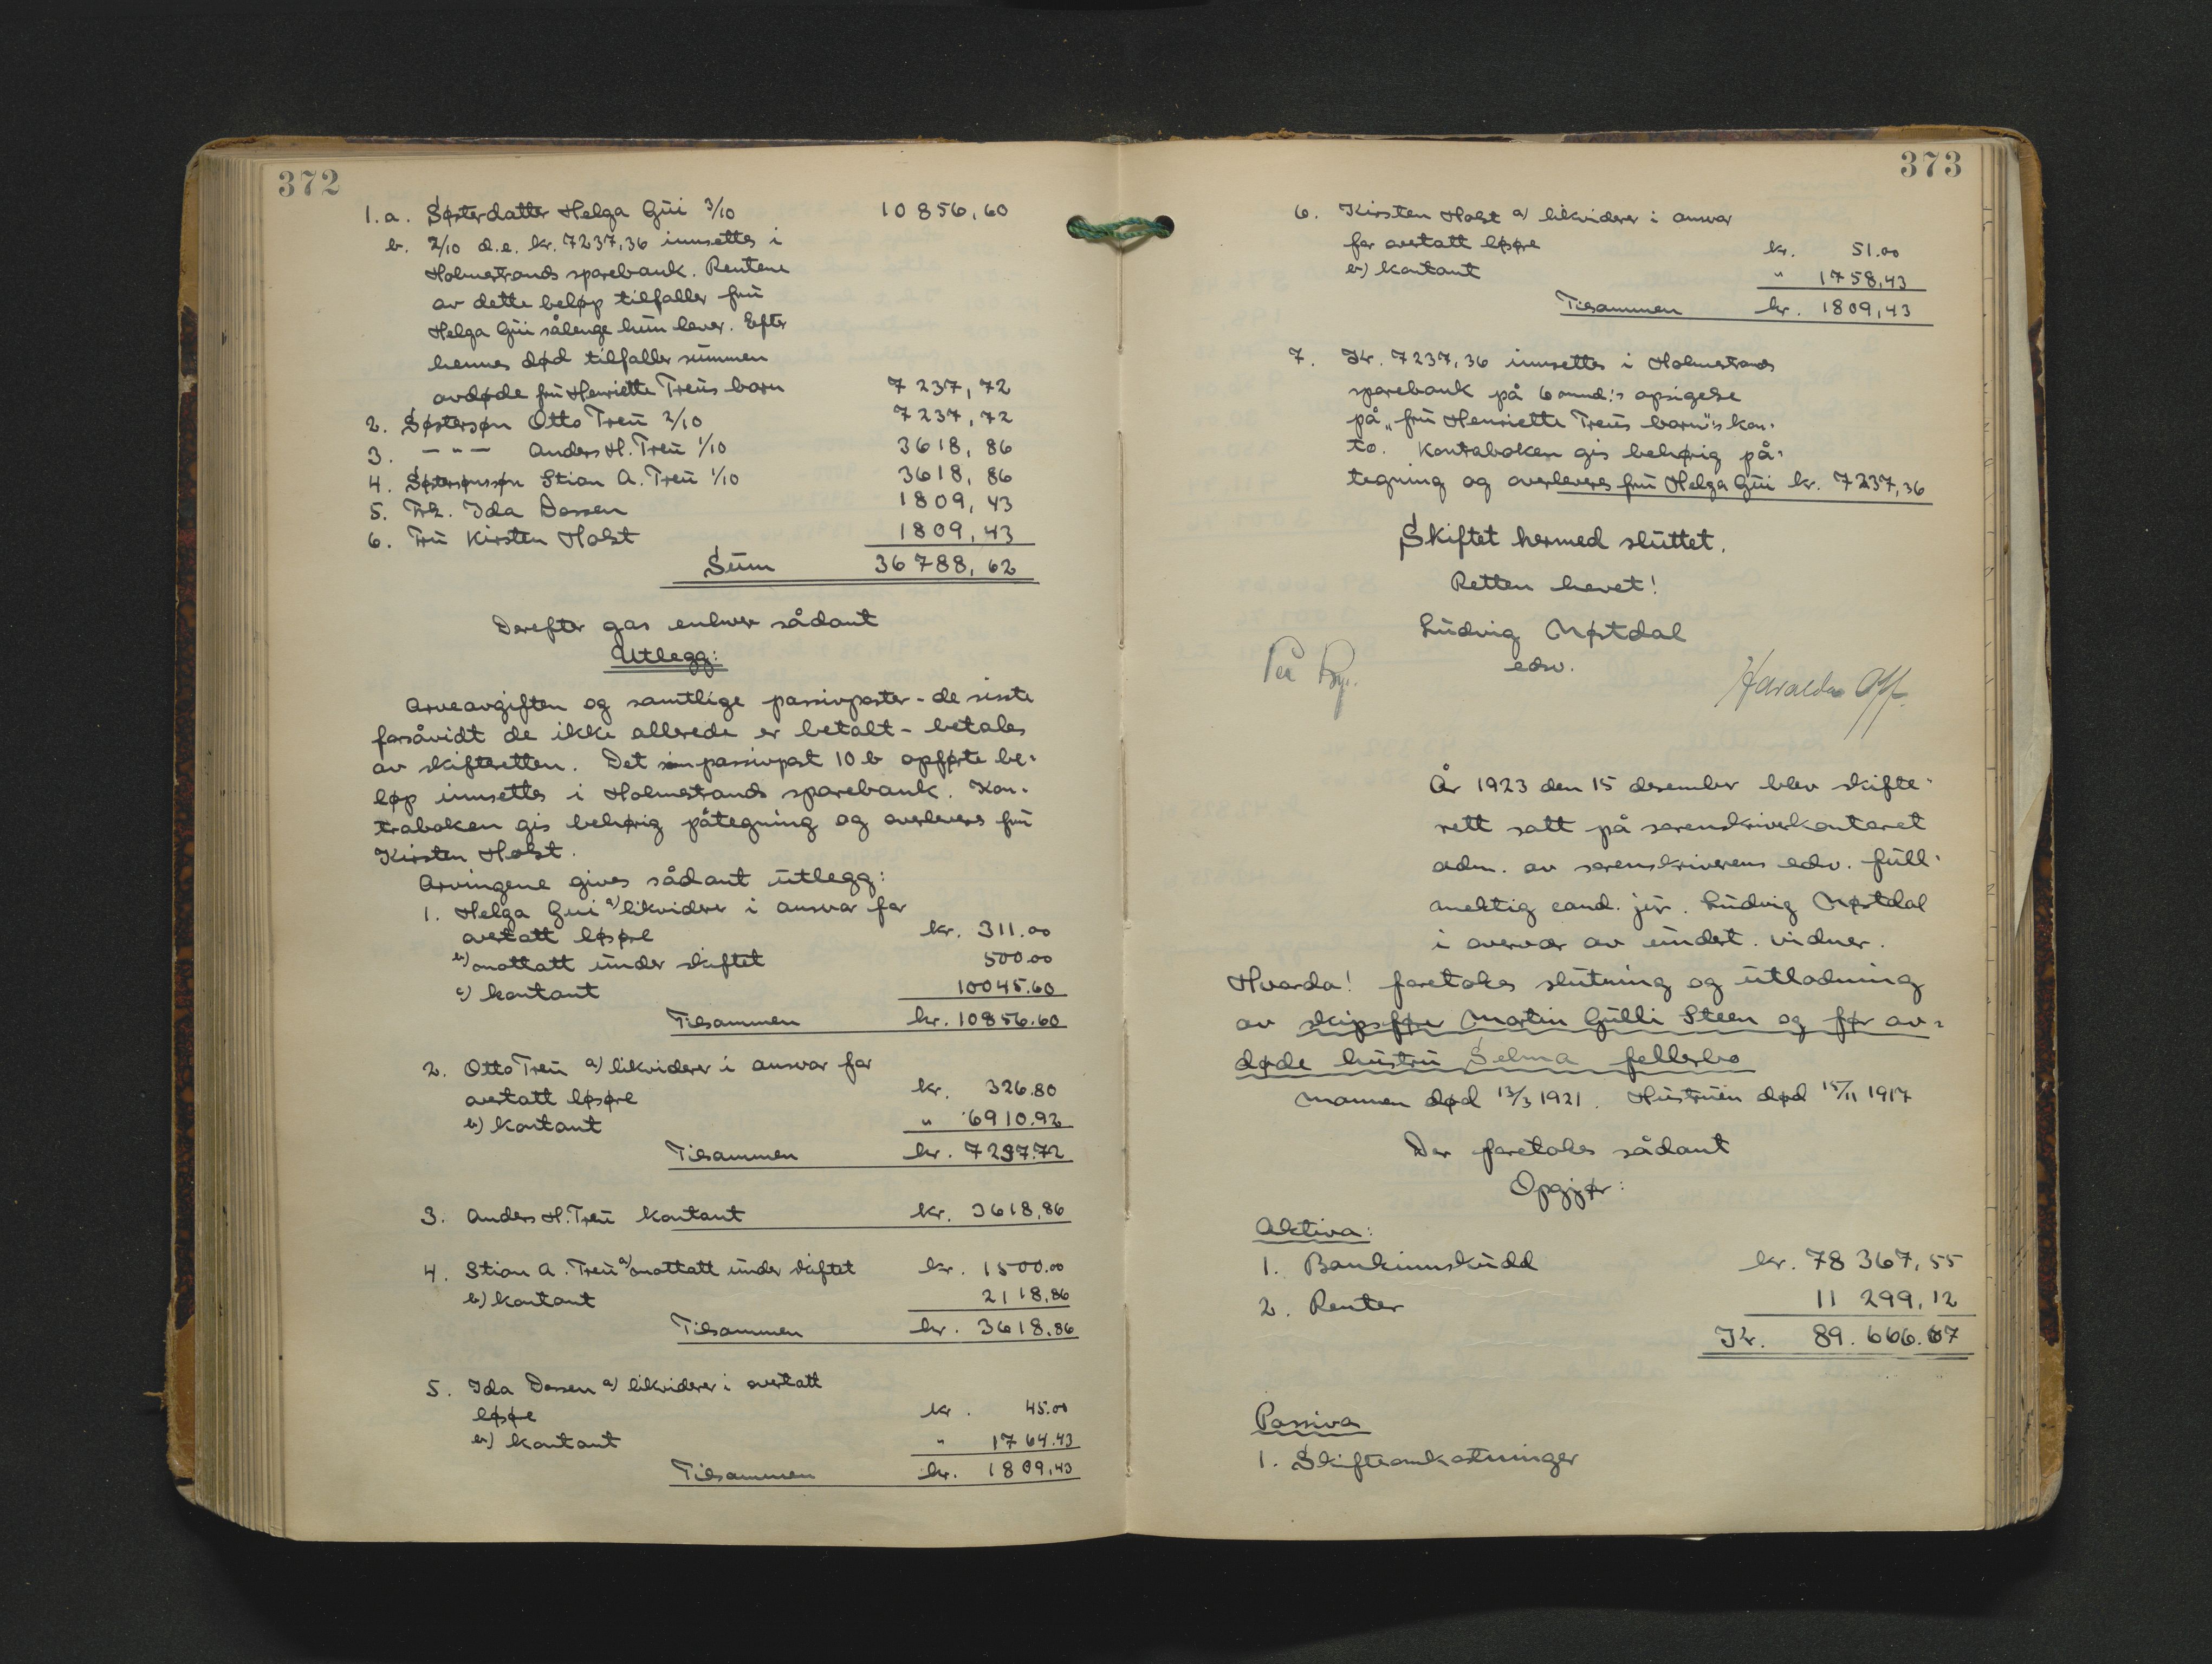 372
1.a. Søsterdatter Helga Gui 3/10 10 856,60
b. 2/10 d.e. kr. 7237,36 innsettes i
Holmestrands sparebank. Rentene
av dette beløp tilfaller fru
Helga Gui sålenge hun lever. Efter
hennes død tilfaller summen
avdøde fru Henriette Treus barn 7 237,72
2. Søstersøn Otto Treu 2/10 7 237,72
3. — " — Anders H. Treu 1/10 3 618,86
4. Søstersønssøn Stian A. Treu 1/10 3 618,86
5. Frk. Ida Dossen 1 809,43
6. Fru Kirsten Holst 1 809,43
Sum 36 788,62
Derefter gas enhver sådant
Utlegg:
Arveavgiften og samtlige passivposter - de siste
forsåvidt de ikke allerede er betalt - betales
av skifteretten. Det i passivpost 10 b opførte be-
løp innsettes i Holmestrands sparebank. Kon-
traboken gis behørig påtegning og overleveres fru
Kirsten Holst.
Arvingene gives sådant utlegg:
1. Helga Gui a) likviderer i ansvar for
overtatt løsøre kr. 311.00
b) mottatt under skiftet 500.00
c) kontant 10045.60
Tilsammen kr. 10856.60
2. Otto Treu a) likviderer i ansvar for
overtatt løsøre kr. 326.80
b) kontant " 6910.92
Tilsammen kr. 7237.72
3. Anders H. Treu kontant kr. 3618,86
4. Stian A. Treu a) mottatt under skiftet kr. 1500.00
b) kontant 2118,86
Tilsammen kr. 3618.86
5. Ida Dossen a) likviderer i overtatt
løsøre kr. 45.00
b) kontant " 1764.43
Tilsammen kr. 1809,43
373
6. Kirsten Holst a) likviderer i ansvar
for overtatt løsøre kr. 51.00
b) kontant " 1758,43
Tilsammen kr. 1809,43
7. Kr. 7237,36 innsettes i Holmestrands
sparebank på 6 mnd.'s opsigelse
på „fru Henriette Treus barn"s kon-
to. Kontraboken gis behørig på-
tegning og overleveres fru Helga Gui kr. 7237,36
Skiftet hermed sluttet.
Retten hevet!
Ludvig Møstdal
edsv.
År 1923 den 15 desember blev skifte-
rett satt på sorenskriverkontoret
adm. av sorenskriverens edsv. full-
mektig cand. jur. Ludvig Møstdal
i overvær av undert. vidner.
Hvorda! foretokes slutning og utlodning
av skipsfører Martin Gulli Steen og før av-
døde hustru Selma fellesbo
Mannen død 13/3 1921. Hustruen død 15/11 1917
Der foretokes sådant
Opgjør:
Aktiva:
1. Bankinnskudd kr. 78 367,55
2. Renter 11 299,12
Kr. 89.666.67
Passiva
1. Skifteomkostninger